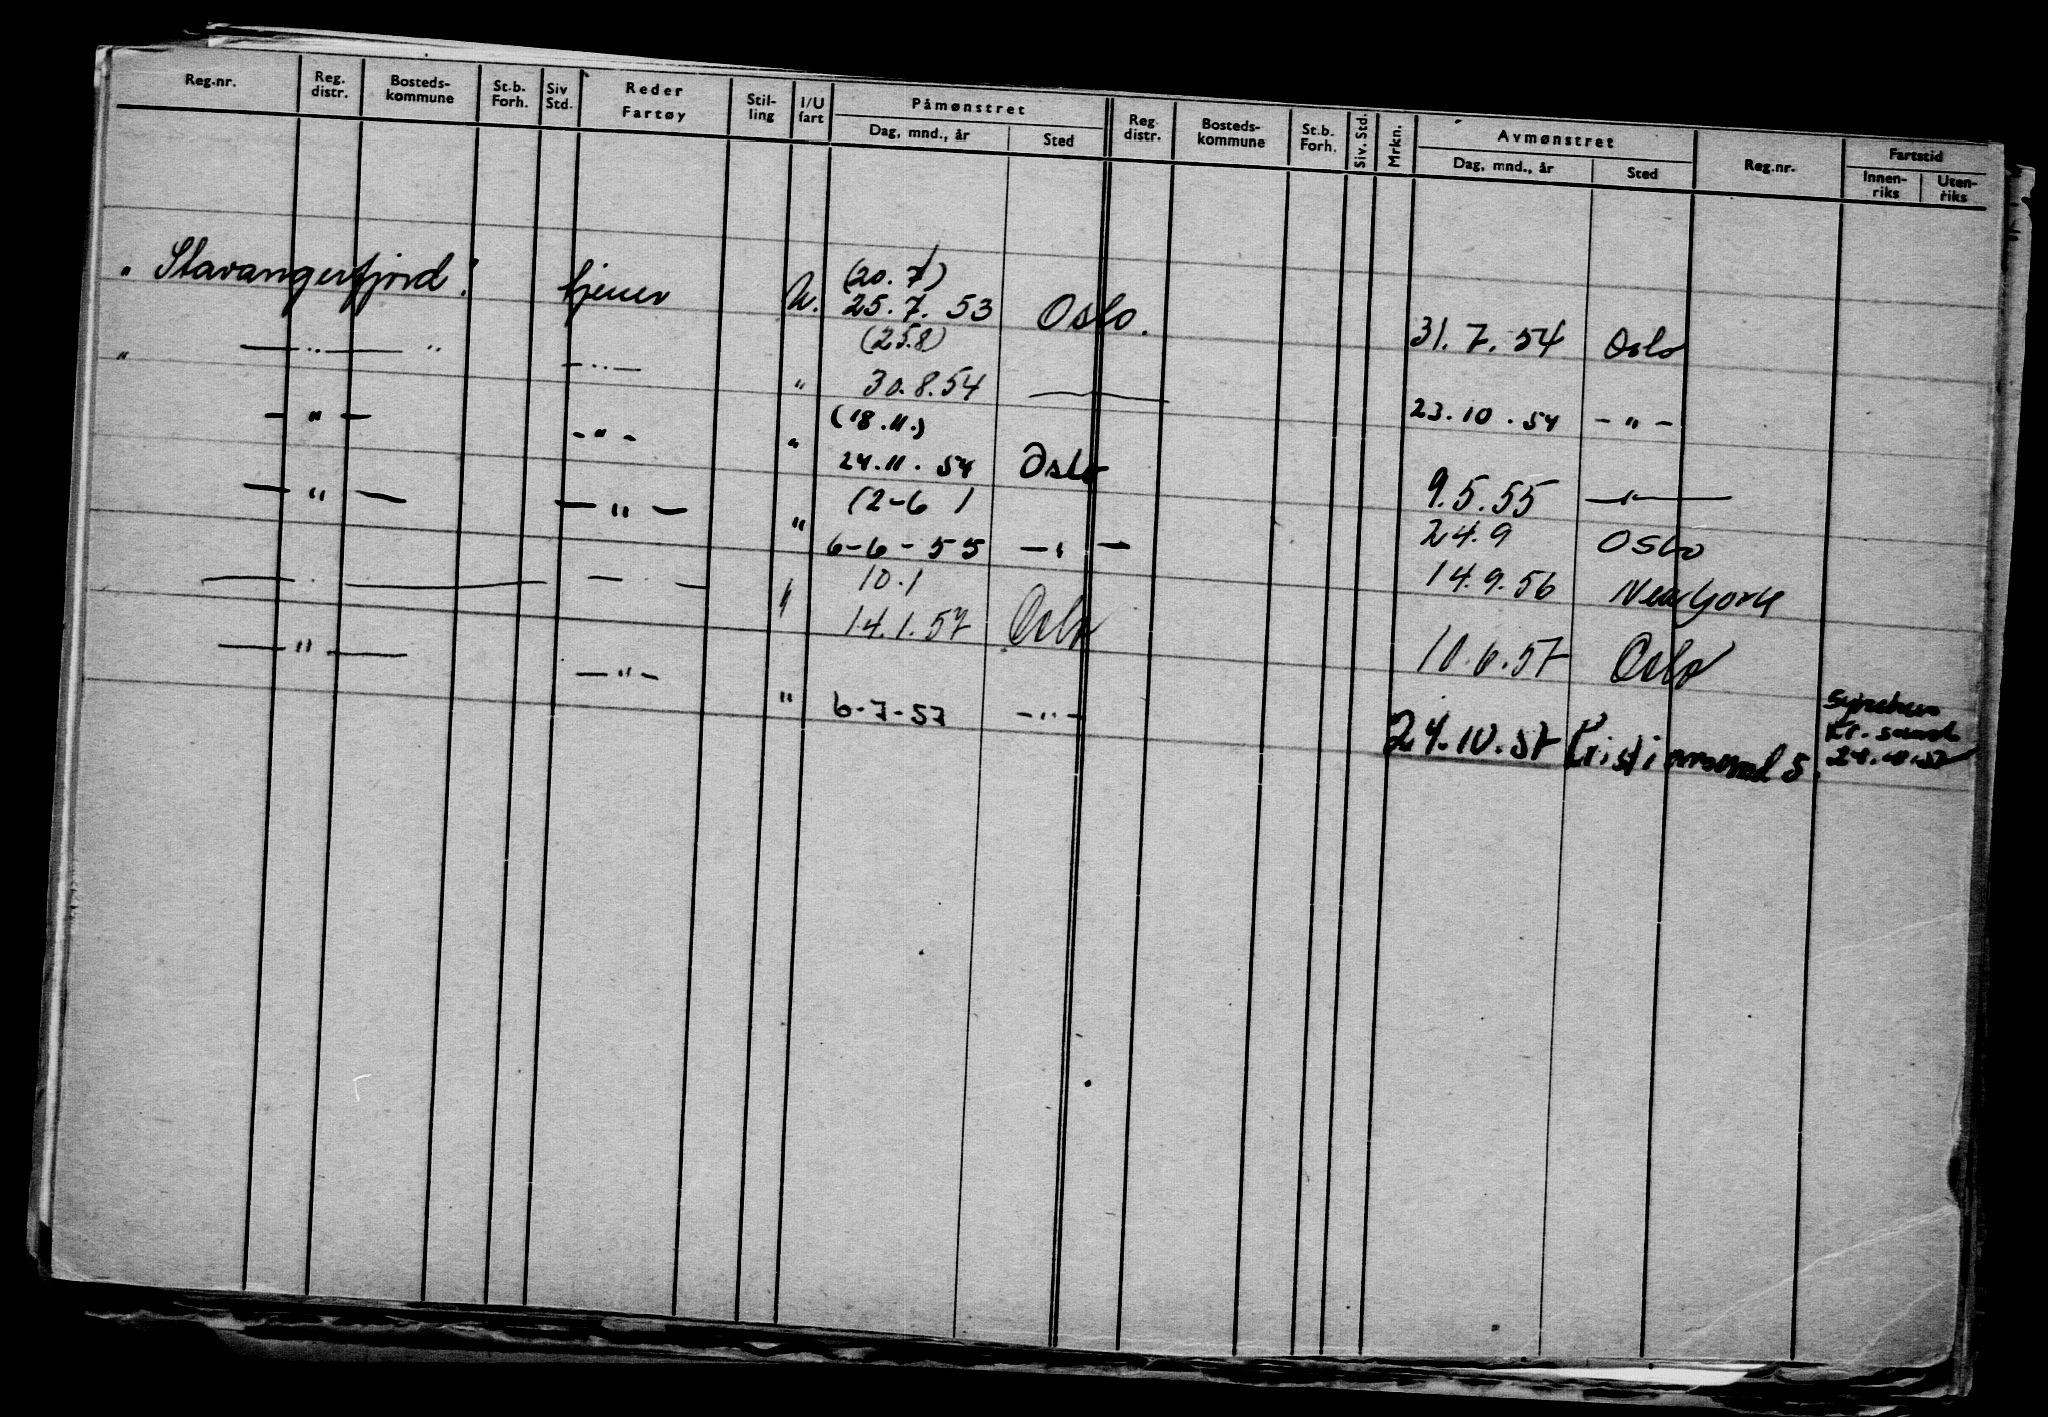 Reg.nr. Reg. distr. Bosteds-kommune St.b. Forh. Siv Std. Reder Fartøy Stil-ling I/U fart Påmønstret Dag, mnd., år Sted Reg. distr. Bosteds-kommune St.b. Forh. Siv. Std. Mrkn. Avmønstret Dag, mnd., år Sted Reg.nr. Fartstid Innen-riks Uten-riks
(20.7)
" Stavangerfjord". tjener U. 25.7.53 Oslo. 31.7.54 Oslo
(25.8)
" — " — " — " — " 30.8.54 — 23.10.54 - " -
(18.11.)
- " - - " - " 24.11.54 Oslo 9.5.55 — " —
(2-6) 24.9 Oslo
— " — — " — " 6-6-55 — " — 14.9.56 New York
10.1
— " — — " — " 14.1.57 Oslo 10.6.57 Oslo
— " — — " — " 6-7-57 - " - 24.10.57 Kristiansand S.
Kr. sand
24.10.57